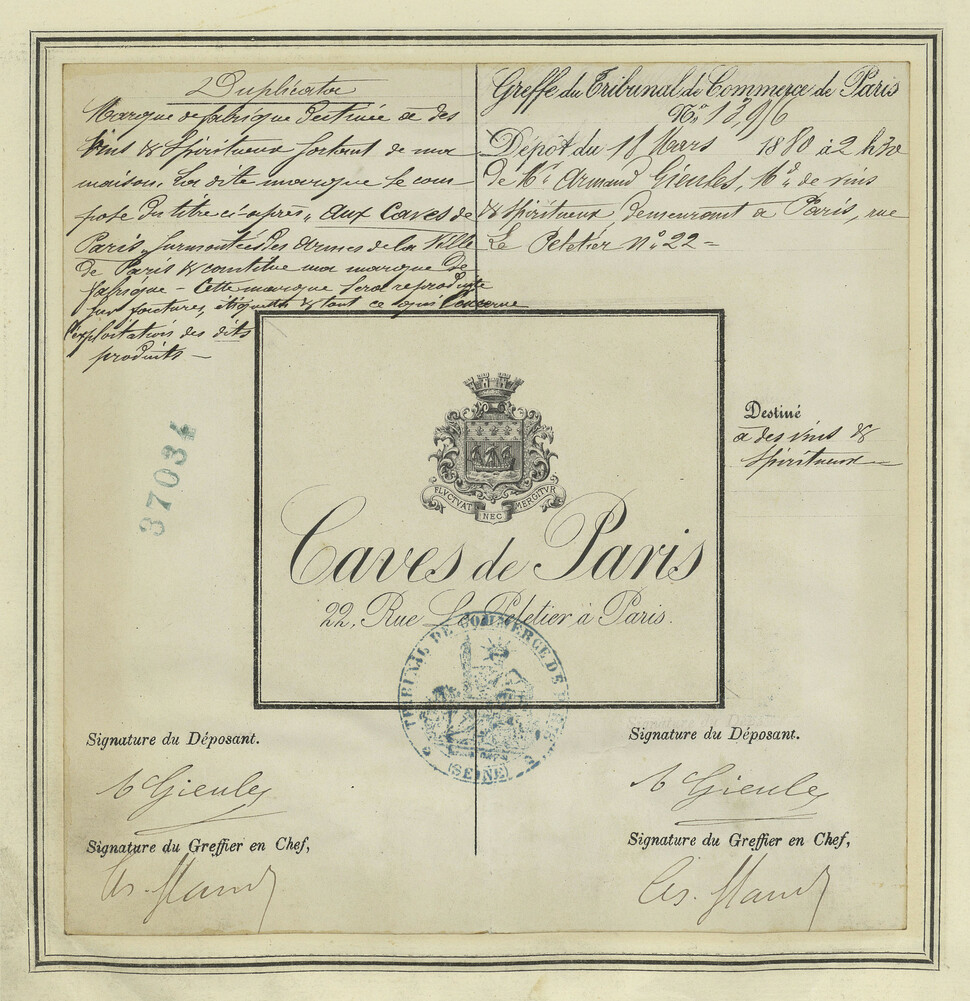 Duplicata
Marque de fabrique destinée à des
Vins & Spiritueux sortant de ma
maison. La dite marque se com-
pose du titre ci-après „ aux Caves de
Paris „ surmontée des armes de la Ville
de Paris & constitue ma marque de
fabrique – Cette marque sera reproduite
sur factures, étiquettes & tout ce qui concerne
l'exploitation des dits
produits –
Greffe du Tribunal de Commerce de Paris
N° 13,976
Dépôt du 18 Mars 1880 à 2 h 30
de Mr Armand Gieules, Md de vins
& Spiritueux demeurant à Paris, rue
Le Peletier N° 22 =
37034
FLVCTVAT NEC MERGITVR
Caves de Paris
22, Rue Le Peletier à Paris.
Destiné
à des vins &
Spiritueux
TRIBUNAL DE COMMERCE DE PARIS
(SEINE)
Signature du Déposant.
A Gieules
Signature du Greffier en Chef,
Signature du Déposant.
A Gieules
Signature du Greffier en Chef,